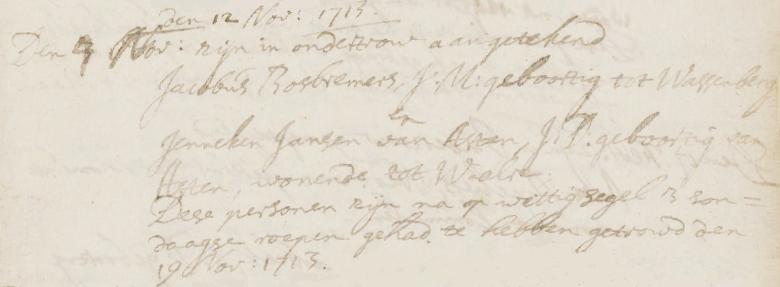 den 12 Nov: 1713.
Den Nov: zijn in ondertrow aangetekend
Jacobus Rosbremers, J:M: geboortig tot Wassenberg
en
Jenneken Jansen van Asten, J:D: geboortig van
Asten, wonende tot Waalre.
Dese personen zijn na op wettig segel 3 son=
daagse roepen gehad te hebben getrowd den
19 Nov: 1713.